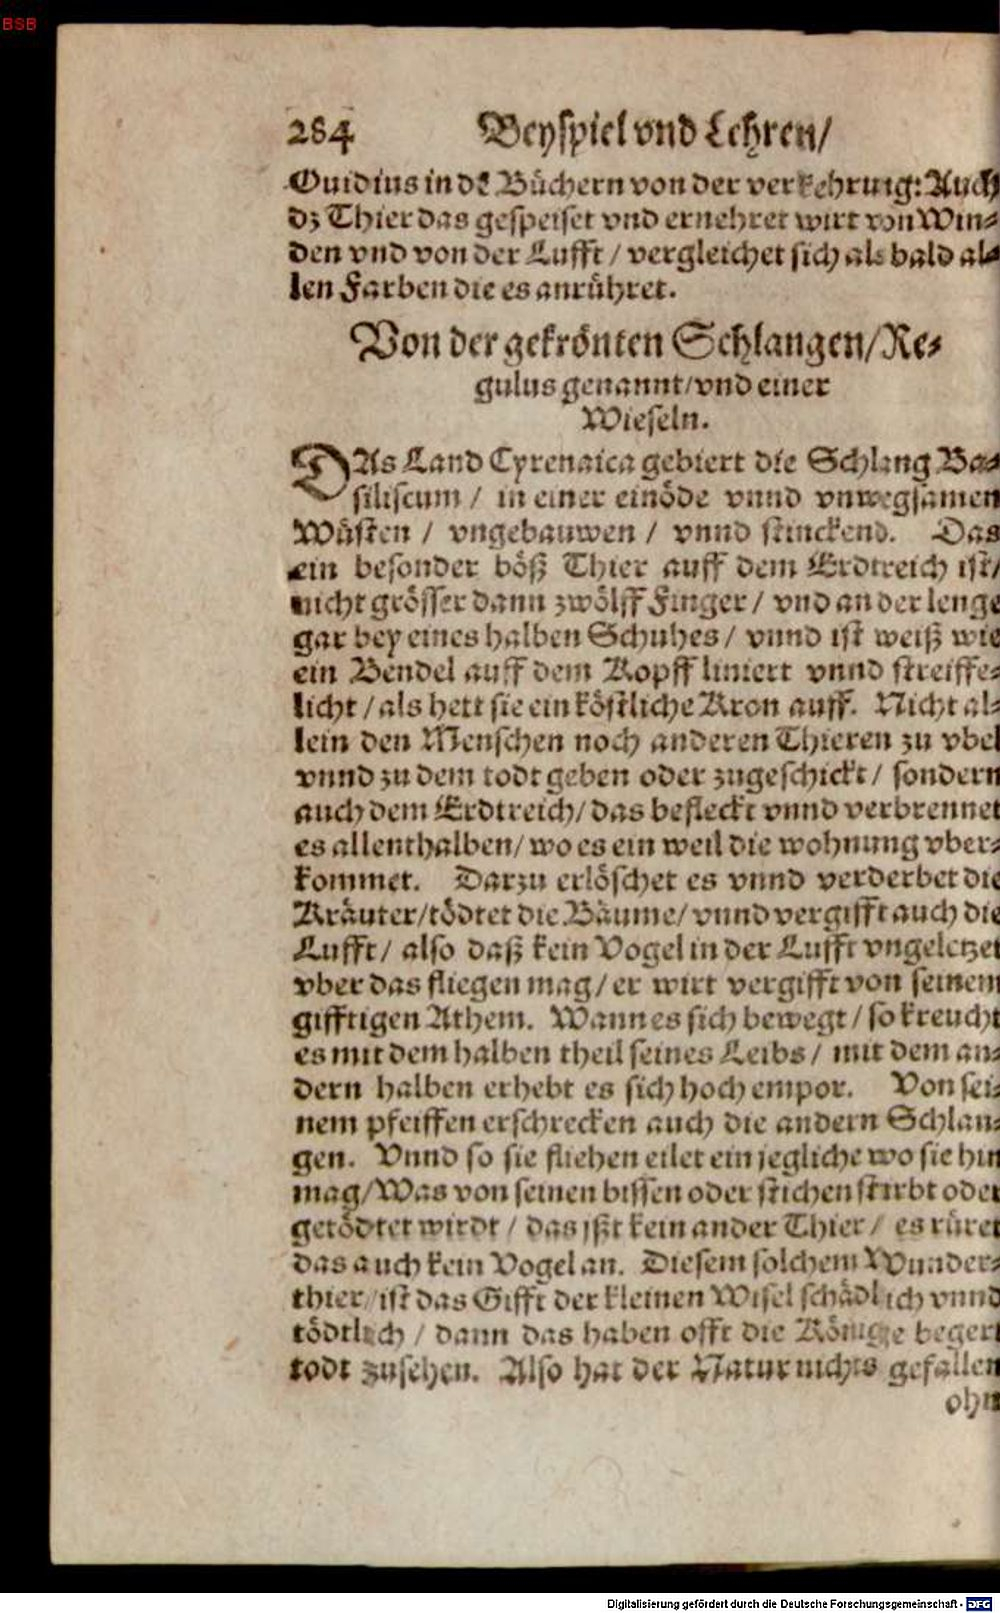 BSB
284 Beyspiel vnd Lehren/
Ouidius in dē Büchern von der verkehrung: Auch
dz Thier das gespeiset vnd ernehret wirt von Win⸗
den vnd von der Lufft / vergleichet sich als bald al⸗
len Farben die es anrühret.
Von der gekrönten Schlangen/Re⸗
gulus genannt/vnd einer
Wieseln.
DAs Land Cyrenaica gebiert die Schlang Ba⸗
siliscum / in einer einöde vnnd vnwegsamen
Wüsten / vngebauwen / vnnd stinckend. Das
ein besonder böß Thier auff dem Erdtreich ist/
nicht grösser dann zwölff Finger / vnd an der lenge
gar bey eines halben Schuhes / vnnd ist weiß wie
ein Bendel auff dem Kopff liniert vnnd streiffe⸗
licht / als hett sie ein köstliche Kron auff. Nicht al⸗
lein den Menschen noch anderen Thieren zu vbel
vnnd zu dem todt geben oder zugeschickt / sondern
auch dem Erdtreich/ das befleckt vnnd verbrennet
es allenthalben/ wo es ein weil die wohnung vber⸗
kommet. Darzu erlöschet es vnnd verderbet die
Kräuter/tödtet die Bäume/ vnnd vergifft auch die
Lufft / also daß kein Vogel in der Lufft vngeletzet
vber das fliegen mag/ er wirt vergifft von seinem
gifftigen Athem. Wann es sich bewegt / so kreucht
es mit dem halben theil seines Leibs / mit dem an⸗
dern halben erhebt es sich hoch empor. Von sei⸗
nem pfeiffen erschrecken auch die andern Schlan⸗
gen. Vnnd so sie fliehen eilet ein jegliche wo sie hin
mag/ Was von seinen bissen oder stichen stirbt oder
getödtet wirdt / das jßt kein ander Thier / es rüret
das auch kein Vogel an. Diesem solchem Wunder⸗
thier/ ist das Gifft der kleinen Wisel schädlich vnnd
tödtlich / dann das haben offt die Könige begert
todt zusehen. Also hat der Natur nichts gefallen
ohn
Digitalisierung gefördert durch die Deutsche Forschungsgemeinschaft - DFG